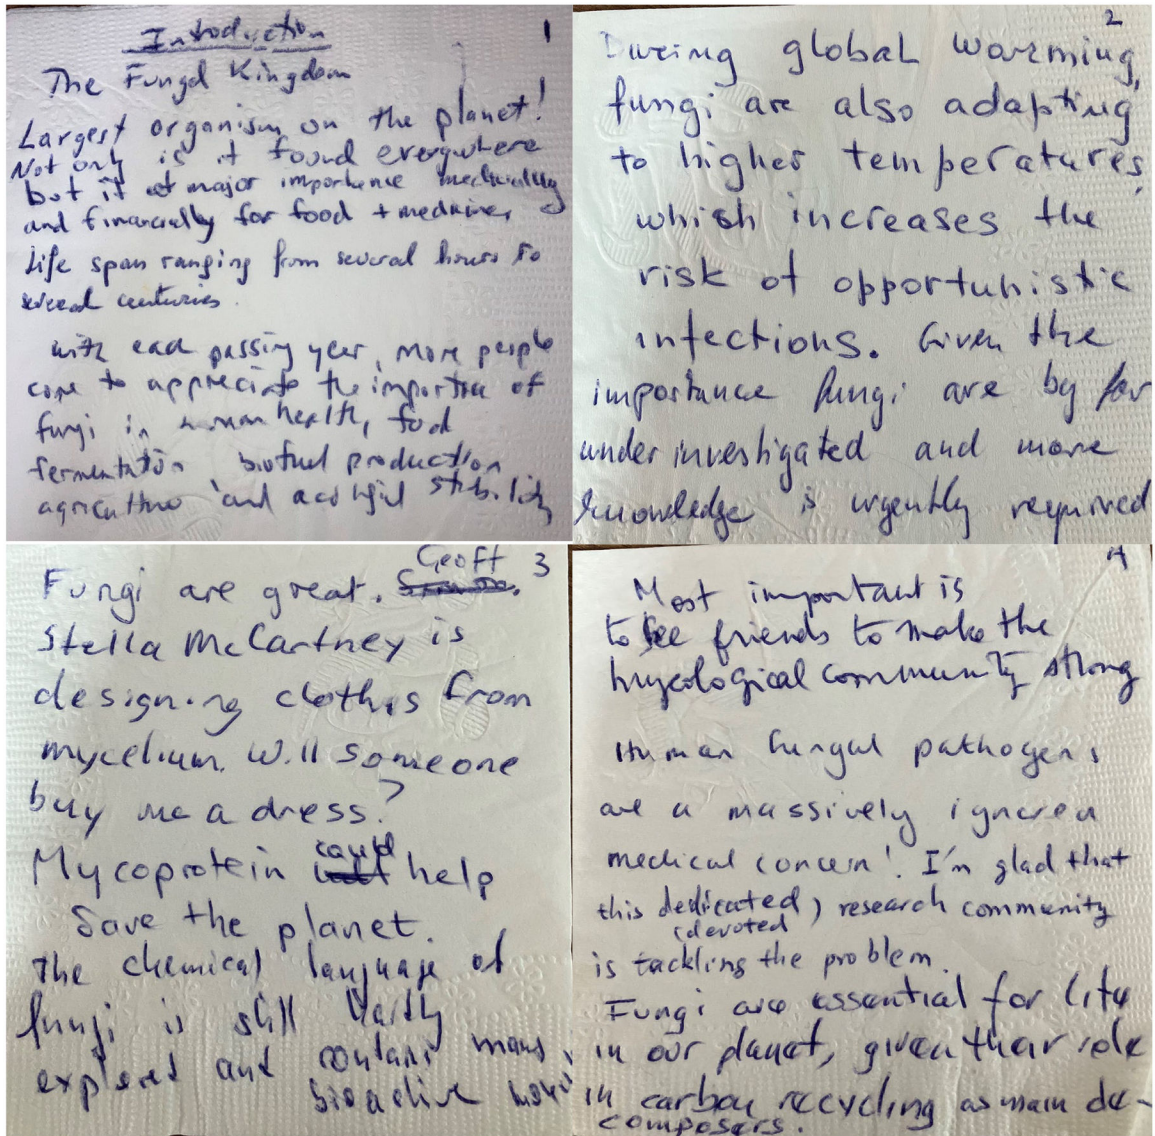 Introduction 1
The Fungal Kingdom
Largest organism on the planet!
Not only is it found everywhere
but it of major importance medicinally
and financially for food + medicine,
Life span ranging from several hours to
several centuries.
with each passing year, more people
come to appreciate the importance of
fungi in human health, food
fermentation biofuel production
agriculture and stability
2
During global warming,
fungi are also adapting
to higher temperatures,
which increases the
risk of opportunistic
infections. Given the
importance fungi are by far
under investigated and more
knowledge is urgently required
Fungi are great. Geoff 3
Stella McCartney is
designing clothes from
mycelium. Will someone
buy me a dress?
Mycoprotein could help
Save the planet.
The chemical language of
fungi is still
explored and contains many
bioactive
4
Most important is
to be friends to make the
mycological community strong
Human fungal pathogens
are a massively ignored
medical concern! I'm glad that
this dedicated) research community
(devoted
is tackling the problem.
Fungi are essential for life
in our planet, given their role
in carbon recycling as main de-
composers.